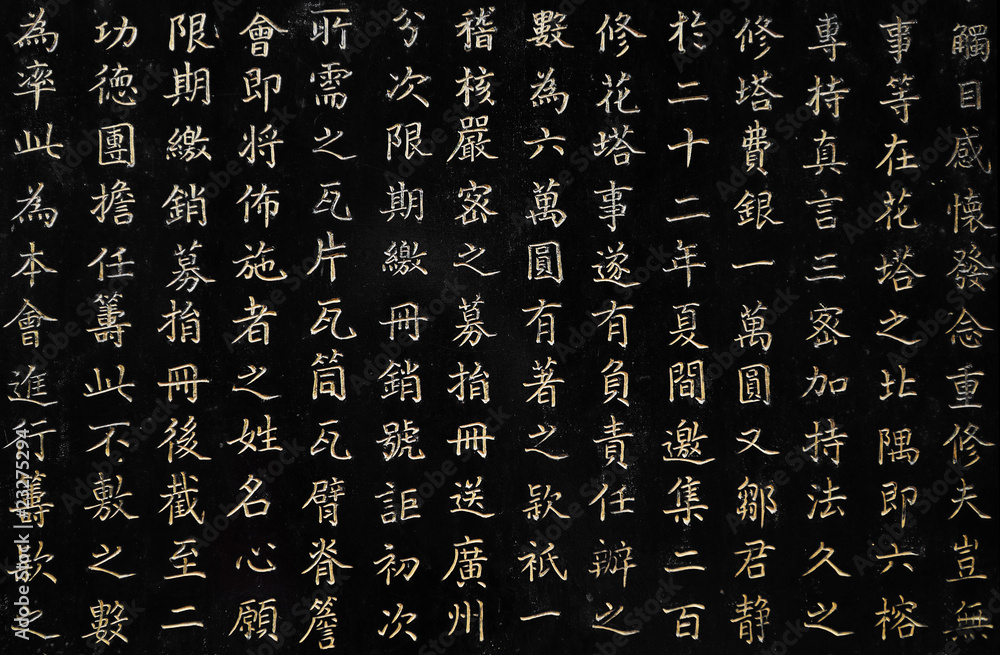 觸目感懷發念重修夫豈無
事等在花塔之北隅即六榕
專持真言三密加持法久之
修塔費銀一萬圓又鄒君静
於二十二年夏間邀集二百
修花塔事遂有負責任辦之
數為六萬圓有著之款祇一
稽核嚴密之募捐冊送廣州
分次限期繳冊銷號詎初次
所需之瓦片瓦筒瓦臂脊簷
會即將佈施者之姓名心願
限期繳銷募捐冊後截至二
功德團擔任籌此不敷之數
為率此為本會進行籌款之
Adobe Stock
Adobe Stock | #232752941